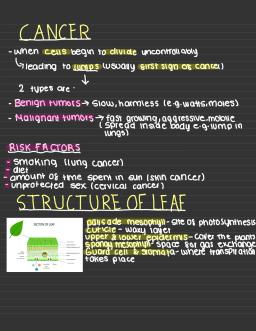 CANCER
- when cells begin to divide uncontrollably
leading to lumps (usually first sign of cancer)
2 types are:
- Benign tumors → slow, harmless (e.g. warts, moles)
- Malignant tumors → fast growing, aggressive, mobile
(spread inside body e.g. lump in
lungs)
RISK FACTORS
- smoking (lung cancer)
- diet
- amount of time spent in sun (skin cancer)
- unprotected sex (cervical cancer)
STRUCTURE OF LEAF
palisade mesophyll - site of photosynthesis
cuticle - waxy layer
upper & lower epidermis - cover the plants
spongy mesophyll - space for gas exchange
Guard cell & stomata - where transpiration
takes place